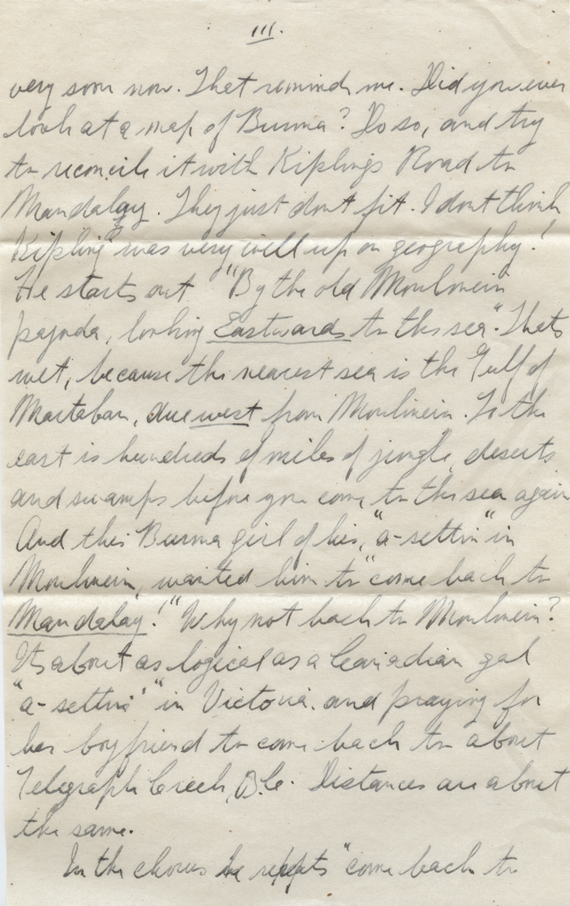 III.
very soon now. That reminds me. Did you ever
look at a map of Burma? Do so, and try
to reconcile it with Kiplings Road to
Mandalay. They just dont fit. I dont think
Kipling was very well up on geography!
He starts out "By the old Moulmein
pagoda, looking Eastwards to the sea". Thats
wet, because the nearest sea is the Gulf of
Martaban, due west from Moulmein. To the
east is hundreds of miles of jungle, deserts
and swamps before you come to the sea again
And this Burma girl of his, "a-settin" in
Moulmein, wanted him to "come back to
Mandalay!" Why not back to Moulmein?
Its about as logical as a Canadian gal
"a-settin'" in Victoria. and praying for
her boyfriend to come back to about
Telegraph Creek, B.C. Distances are about
the same.
In the chorus he repeats "come back to